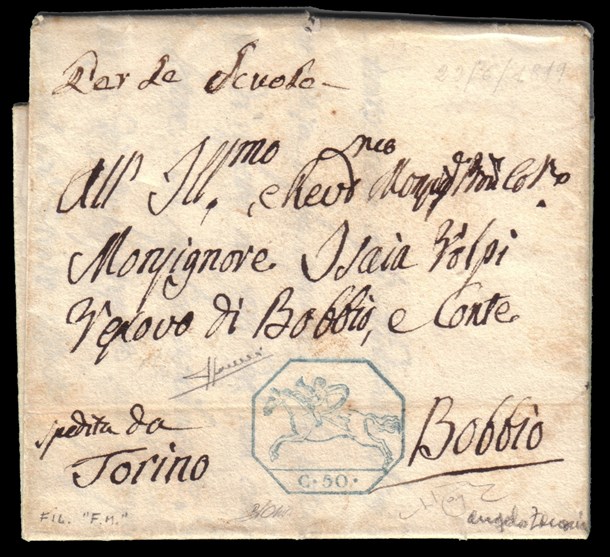 Per le Scuole
23/6/1819
All' Ill.mo e Rev.mo
Monsignore Isaia Volpi
Vescovo di Bobbio, e Conte
spedita da
Torino
C. 50.
Bobbio
FIL. "F.M."